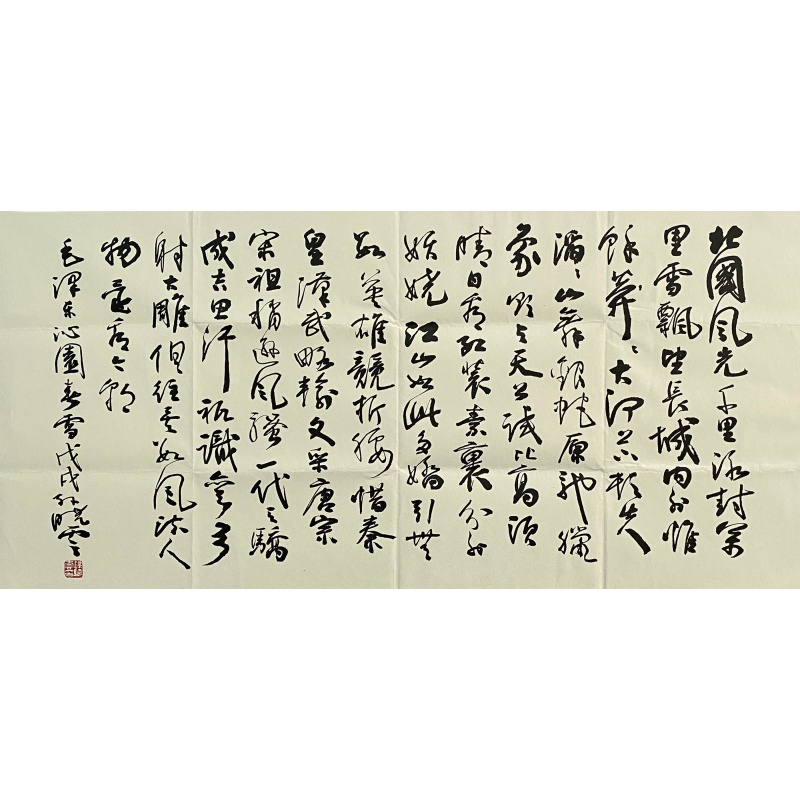 北國風光千里冰封萬
里雪飄望長城內外惟
餘莽〻大河上下頓失
滔〻山舞銀蛇原馳蠟
象欲與天公試比高須
晴日看紅裝素裹分外
妖嬈江山如此多嬌引無
數英雄競折腰惜秦
皇漢武略輸文采唐宗
宋祖稍遜風騷一代天驕
成吉思汗祇識彎弓
射大雕俱往矣數風流人
物還看今朝
毛澤東沁園春雪戊戌孫曉雲